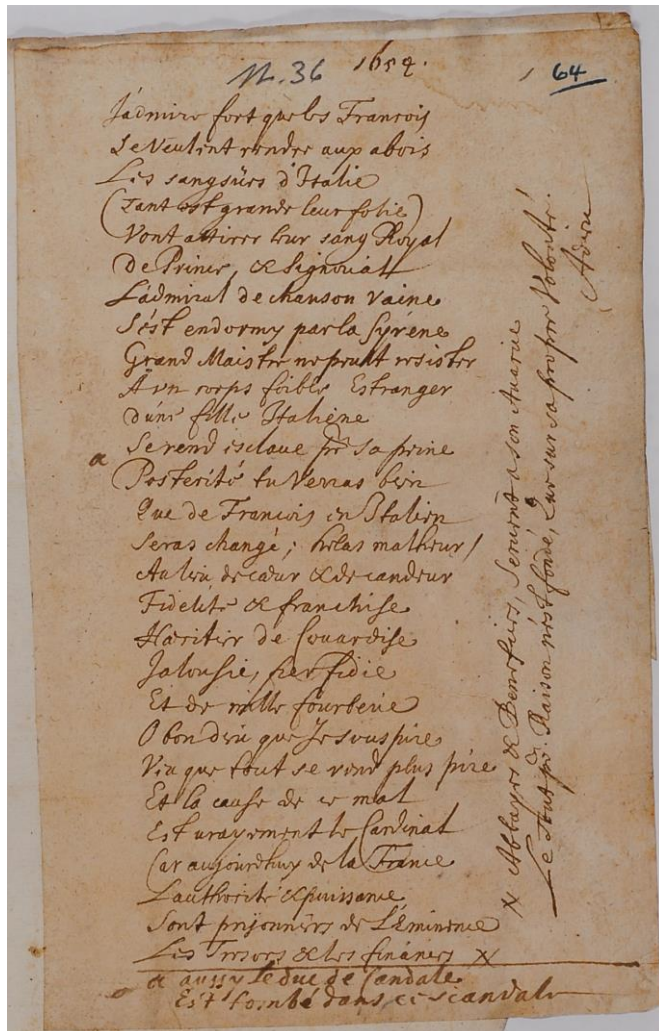 N. 36 1654. 64
J'admire fort que les Francois
Se veulent rendre aux abois
Les sangsües d'Italie
(Tant est grande leur folie)
Vont attirer leur sang Royal
De Prince, & Signoual
L'admiral de chanson vaine
S'est endormy par la Syrene
Grand Maistre ne peult resister
A un corps foible Estranger
D'une fille Italiene
a Se rend esclaue pr sa peine
Posterité tu verras bien
Que de Francois en Italien
Seras changé; helas malheur!
Au lieu de cœur & de candeur
Fidelité & franchise
Hæritier de Couardise
Jalousie, perfidie
Et de mille fourberie
O bon dieu que Je souspire
Veu que tout se rend plus pire
Et la cause de ce mal
Est urayement le Cardinal
Car aujourdhuy de la France
L'authorité & puissance
Sont prisonniers de L'Eminence
Les Tresors & les finances X
a aussy le duc de Candale
Est tombé dans ce scandale
X Abbayes & Benefices, seruent a son Auarice
Le tout pr. Raison n'est fondé, Que sur sa propre Volonté.
Adieu